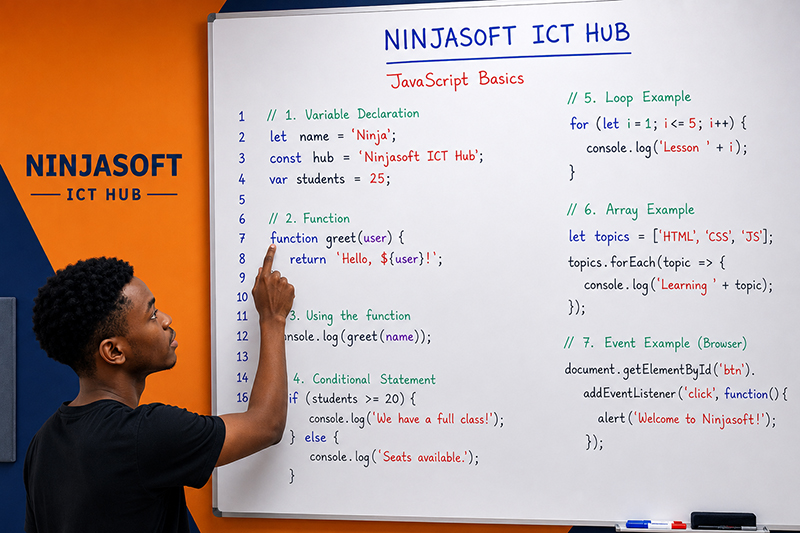 NINJASOFT
ICT HUB
NINJASOFT ICT HUB
JavaScript Basics
1 // 1. Variable Declaration
2 let name = 'Ninja';
3 const hub = 'Ninjasoft ICT Hub';
4 var students = 25;
5
6 // 2. Function
7 function greet(user) {
8 return 'Hello, ${user}!';
9
10
11 3. Using the function
12 nsole.log(greet(name));
13
14 4. Conditional Statement
16 if (students >= 20) {
console.log('We have a full class!');
} else {
console.log('Seats available.');
}
// 5. Loop Example
for (let i = 1; i <= 5; i++) {
console.log('Lesson ' + i);
}
// 6. Array Example
let topics = ['HTML', 'CSS', 'JS'];
topics.forEach(topic => {
console.log('Learning ' + topic);
});
// 7. Event Example (Browser)
document.getElementById('btn').
addEventListener('click', function(){
alert('Welcome to Ninjasoft!');
});